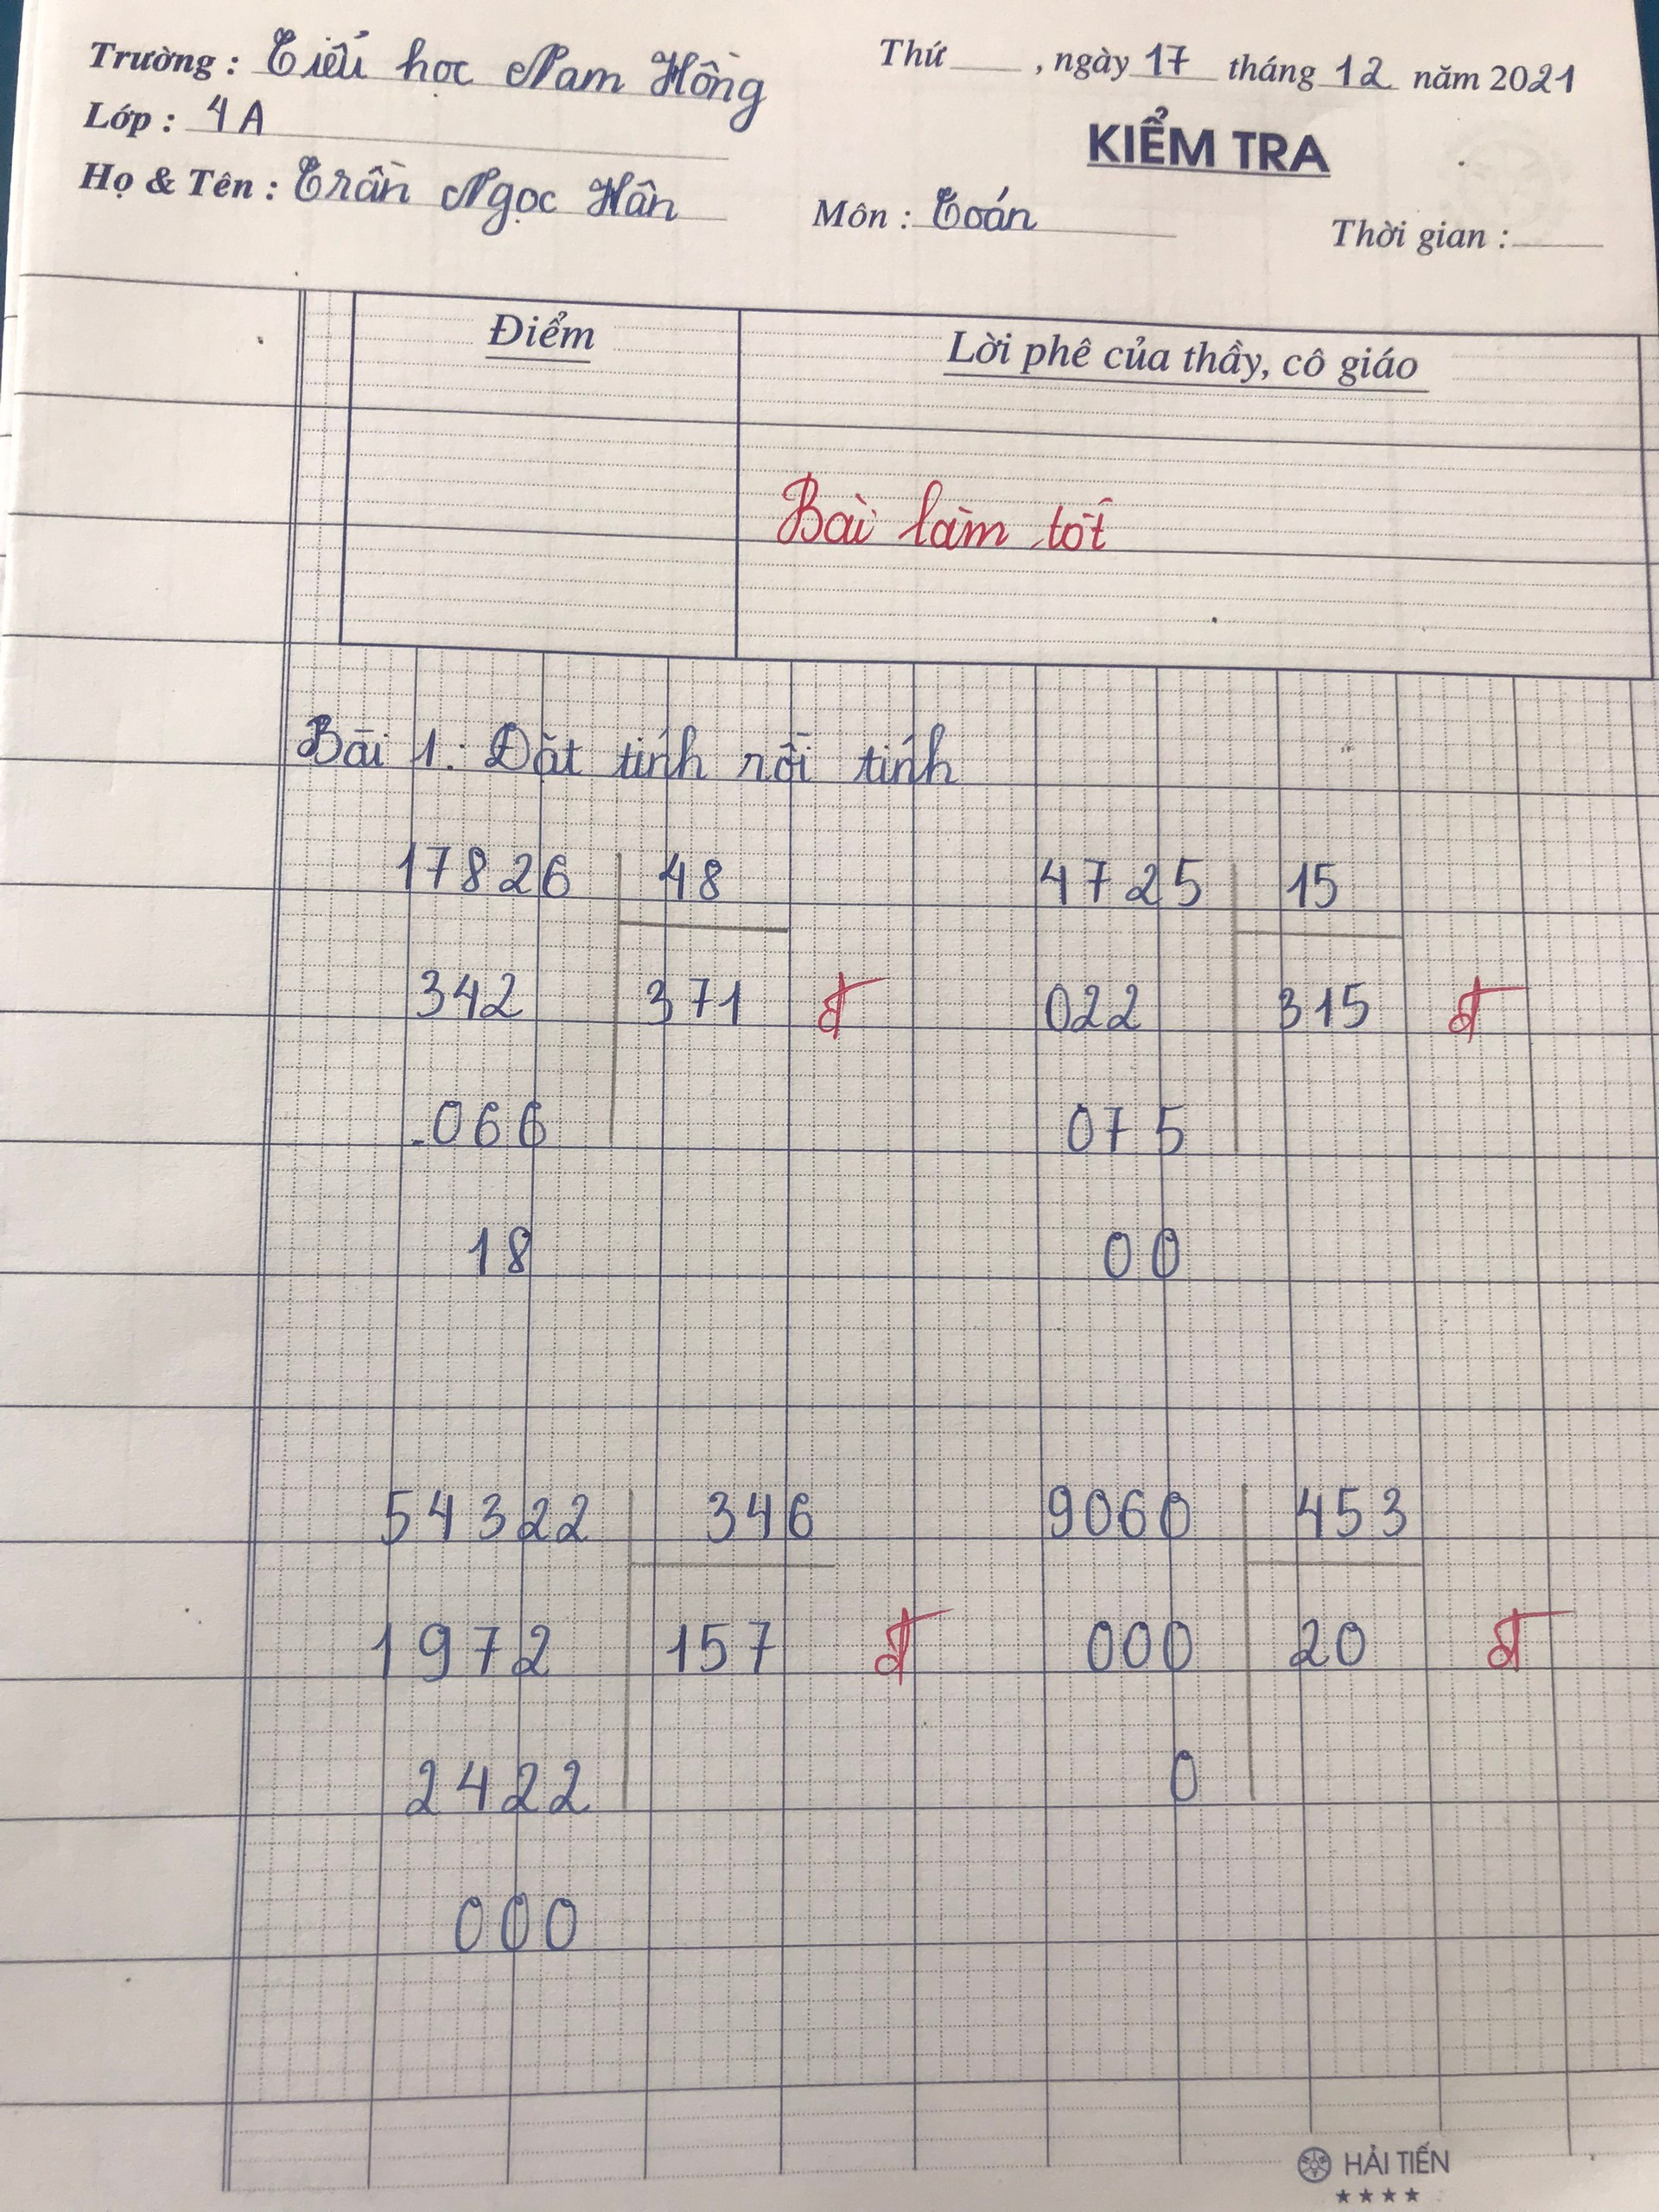 Trường : Tiểu học Nam Hồng
Thứ , ngày 17 tháng 12 năm 2021
Lớp : 4A
KIỂM TRA
Họ & Tên : Trần Ngọc Hân
Môn : Toán
Thời gian :
Điểm
Lời phê của thầy, cô giáo
Bài làm tốt
Bài 1: Đặt tính rồi tính
17826 48
342 371 đ
066
18
4725 15
022 315 đ
075
00
54322 346
1972 157 đ
2422
000
9060 453
000 20 đ
0
HẢI TIẾN